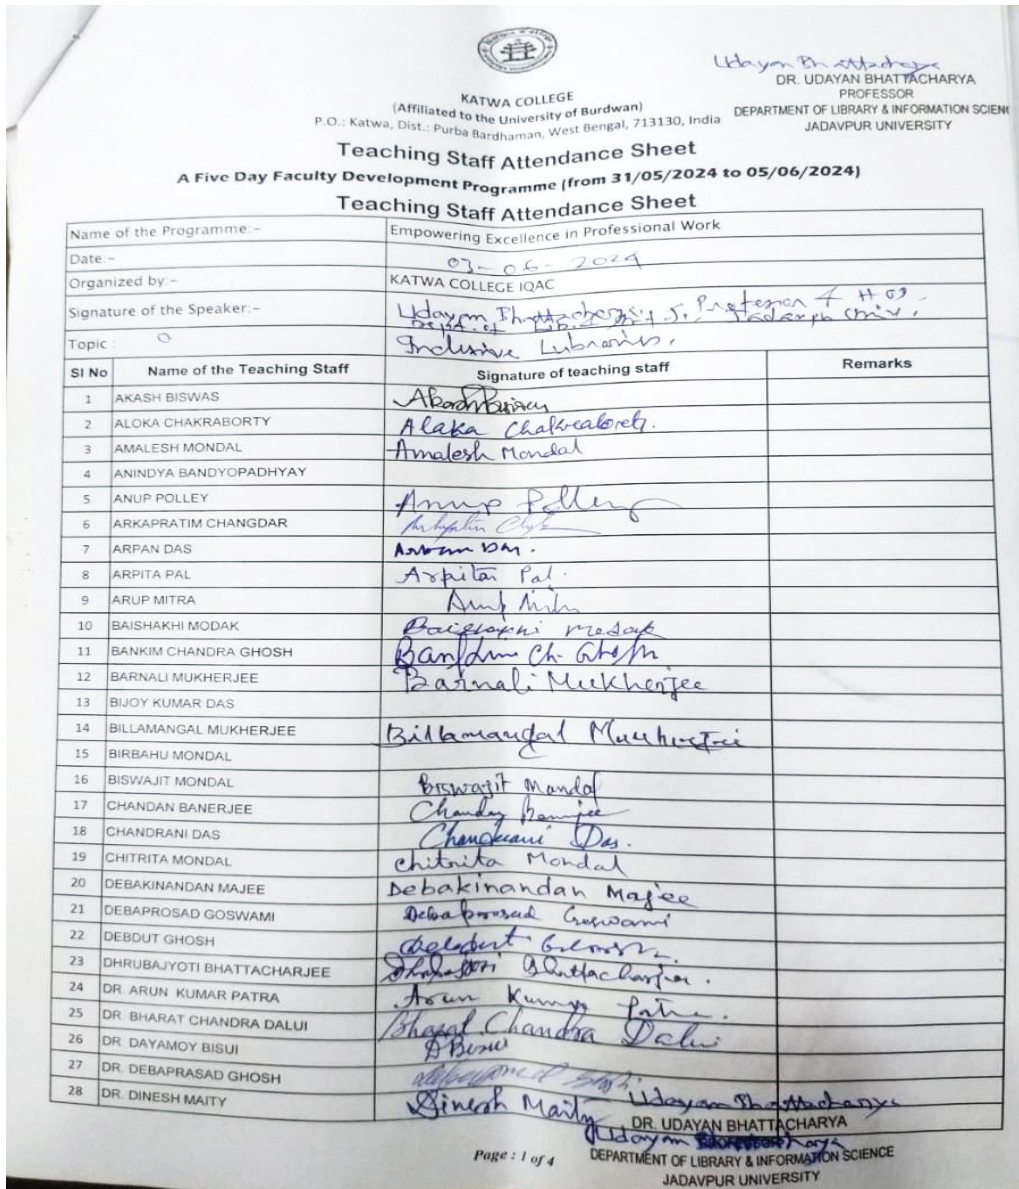 Udayan Bhattacharya
DR. UDAYAN BHATTACHARYA
PROFESSOR
DEPARTMENT OF LIBRARY & INFORMATION SCIEN
JADAVPUR UNIVERSITY
KATWA COLLEGE
(Affiliated to the University of Burdwan)
P.O.: Katwa, Dist.: Purba Bardhaman, West Bengal, 713130, India
Teaching Staff Attendance Sheet
A Five Day Faculty Development Programme (from 31/05/2024 to 05/06/2024)
Teaching Staff Attendance Sheet
Name of the Programme:- Empowering Excellence in Professional Work
Date:- 03-06-2024
Organized by:- KATWA COLLEGE IQAC
Signature of the Speaker:- Udayan Bhattacharya, Professor & HOD,
Dept. of Lib. & Inf. Sc., Jadavpur Univ.
Topic : Inclusive Libraries.
Sl No Name of the Teaching Staff Signature of teaching staff Remarks
1 AKASH BISWAS Akash Biswas
2 ALOKA CHAKRABORTY Alaka Chakraborty.
3 AMALESH MONDAL Amalesh Mondal
4 ANINDYA BANDYOPADHYAY
5 ANUP POLLEY Anup Polley
6 ARKAPRATIM CHANGDAR
7 ARPAN DAS Arpan Das.
8 ARPITA PAL Arpita Pal.
9 ARUP MITRA Arup Mitra
10 BAISHAKHI MODAK Baishakhi Modak
11 BANKIM CHANDRA GHOSH Bankim Ch. Ghosh
12 BARNALI MUKHERJEE Barnali Mukherjee
13 BIJOY KUMAR DAS
14 BILLAMANGAL MUKHERJEE Billamangal Mukherjee
15 BIRBAHU MONDAL
16 BISWAJIT MONDAL Biswajit Mandal
17 CHANDAN BANERJEE Chandan Banerjee
18 CHANDRANI DAS Chandrani Das.
19 CHITRITA MONDAL Chitrita Mondal
20 DEBAKINANDAN MAJEE Debakinandan Majee
21 DEBAPROSAD GOSWAMI Debaprosad Goswami
22 DEBDUT GHOSH
23 DHRUBAJYOTI BHATTACHARJEE Dhrubajyoti Bhattacharjee.
24 DR. ARUN KUMAR PATRA Arun Kumar Patra.
25 DR BHARAT CHANDRA DALUI Bharat Chandra Dalui
26 DR DAYAMOY BISUI DBisui
27 DR. DEBAPRASAD GHOSH
28 DR. DINESH MAITY Dinesh Maity
Udayan Bhattacharya
DR. UDAYAN BHATTACHARYA
Udayan Bhattacharya
DEPARTMENT OF LIBRARY & INFORMATION SCIENCE
JADAVPUR UNIVERSITY
Page : 1 of 4